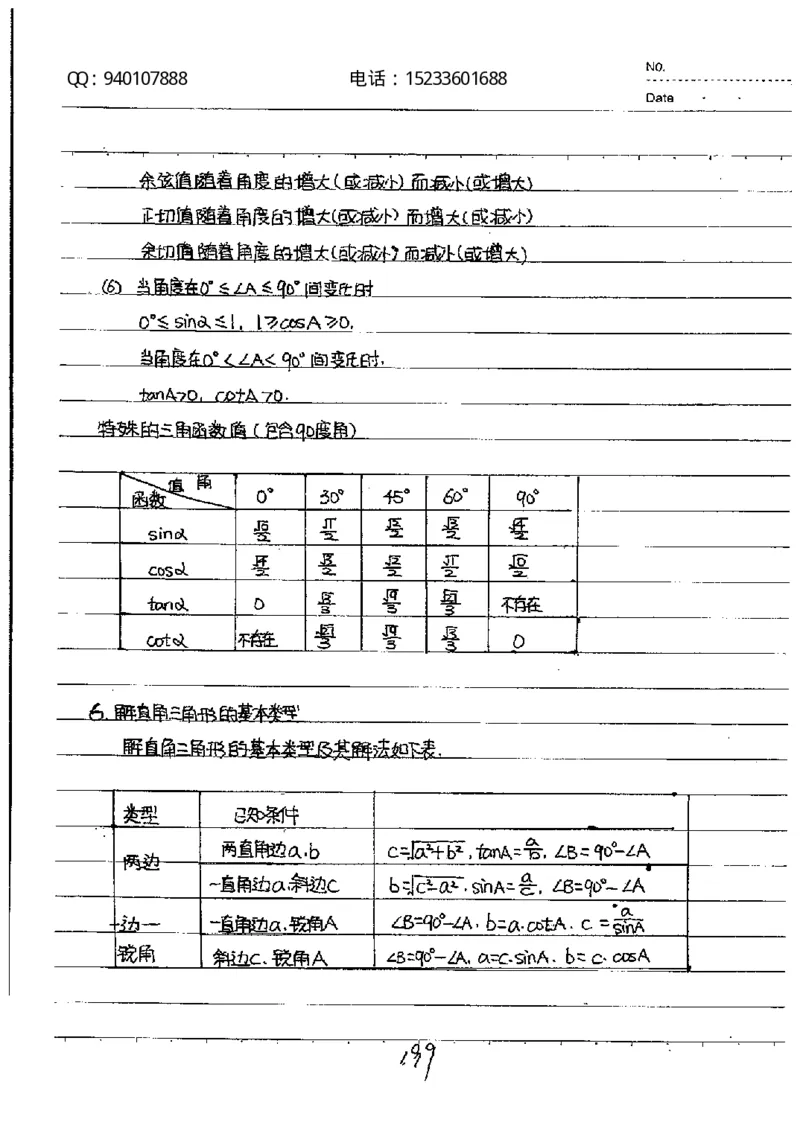 QQ：940107888 电话：15233601688 No.
Date
余弦值随着角度的增大(或减小)而减小(或增大)
正切值随着角度的增大(或减小)而增大(或减小)
余切值随着角度的增大(或减小)而减小(或增大)
(6) 当角度在0°≤∠A≤90°间变化时
0°≤sinα≤1, 1≥cosA≥0.
当角度在0°<∠A<90°间变化时.
tanA>0, cotA>0.
特殊的三角函数值(包含90度角)
值 角 函数 0° 30° 45° 60° 90°
sinα √0/2 √1/2 √2/2 √3/2 √4/2
cosα √4/2 √3/2 √2/2 √1/2 √0/2
tanα 0 √3/3 √9/3 √27/3 不存在
cotα 不存在 √27/3 √9/3 √3/3 0
6. 解直角三角形的基本类型
解直角三角形的基本类型及其解法如下表.
类型 已知条件
两边 两直角边a.b c=√a²+b², tanA=a/b, ∠B=90°-∠A
一直角边a.斜边c b=√c²-a², sinA=a/c, ∠B=90°-∠A
一边一 一直角边a.锐角A ∠B=90°-∠A, b=a.cotA. c=a/sinA
锐角 斜边c.锐角A ∠B=90°-∠A, a=c.sinA. b=c.cosA
139